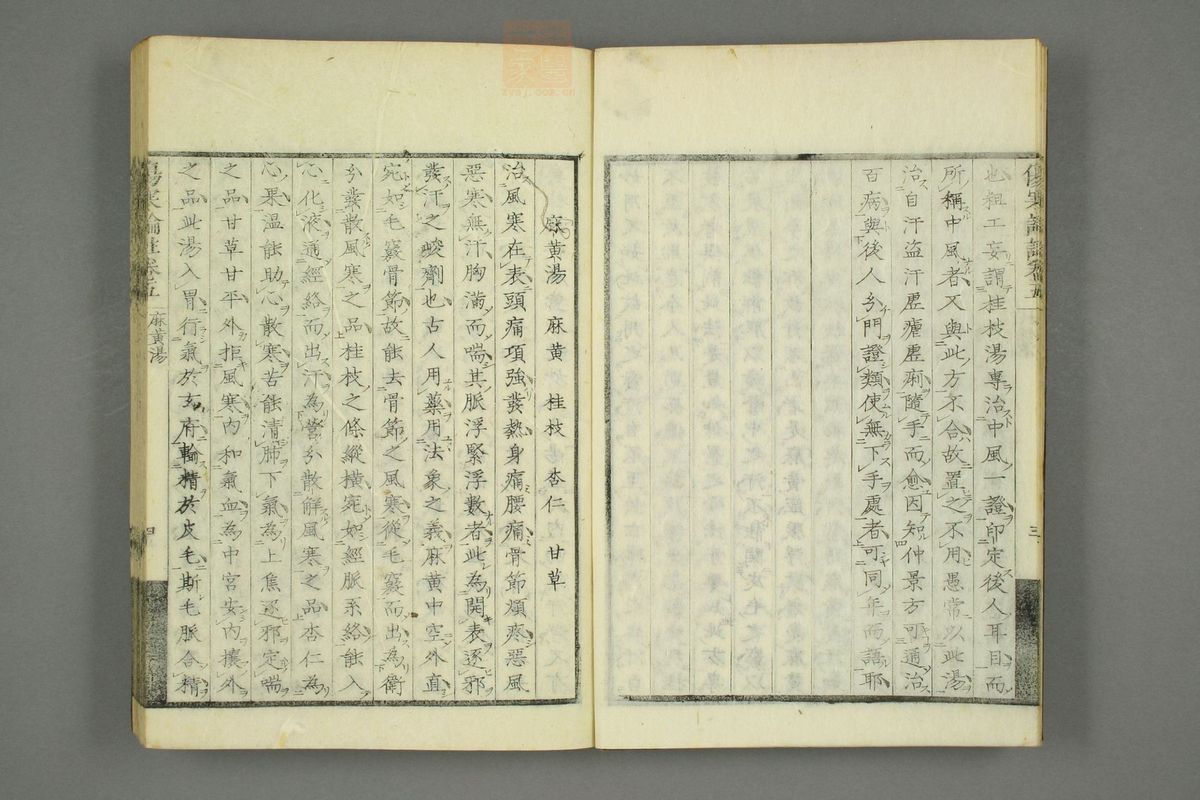 也粗工妄謂桂枝湯專治中風一證印定後人耳目而
所稱中風者又與此方不合故置之不用愚常以此湯
治自汗盜汗虛瘧虛痢隨手而愈因知仲景方可通治
百病與後人分門證類使無下手處者可同年而語耶
三
麻黄湯 麻黄 桂枝 杏仁 甘草
治風寒在表頭痛項強發熱身痛腰痛骨節煩疼惡風
惡寒無汗胸滿而喘其脈浮緊浮數者此為開表逐邪
發汗之峻劑也古人用藥用法象之義麻黄中空外直
宛如毛竅骨節故能去骨節之風寒從毛竅而出為衛
分發散風寒之品桂枝之條縱橫宛如經脈系絡能入
心化液通經絡而出汗為營分散解風寒之品杏仁為
心果溫能助心散寒苦能清肺下氣為上焦逐邪定喘
之品甘草甘平外拒風寒內和氣血為中宮安內攘外
之品此湯入胃行氣於玄府輸精於皮毛斯毛脈合精
麻黄湯
四
zysj.com.cn